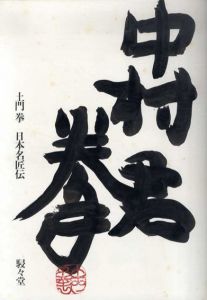 中村君
拳
土門拳 日本名匠伝
駸々堂